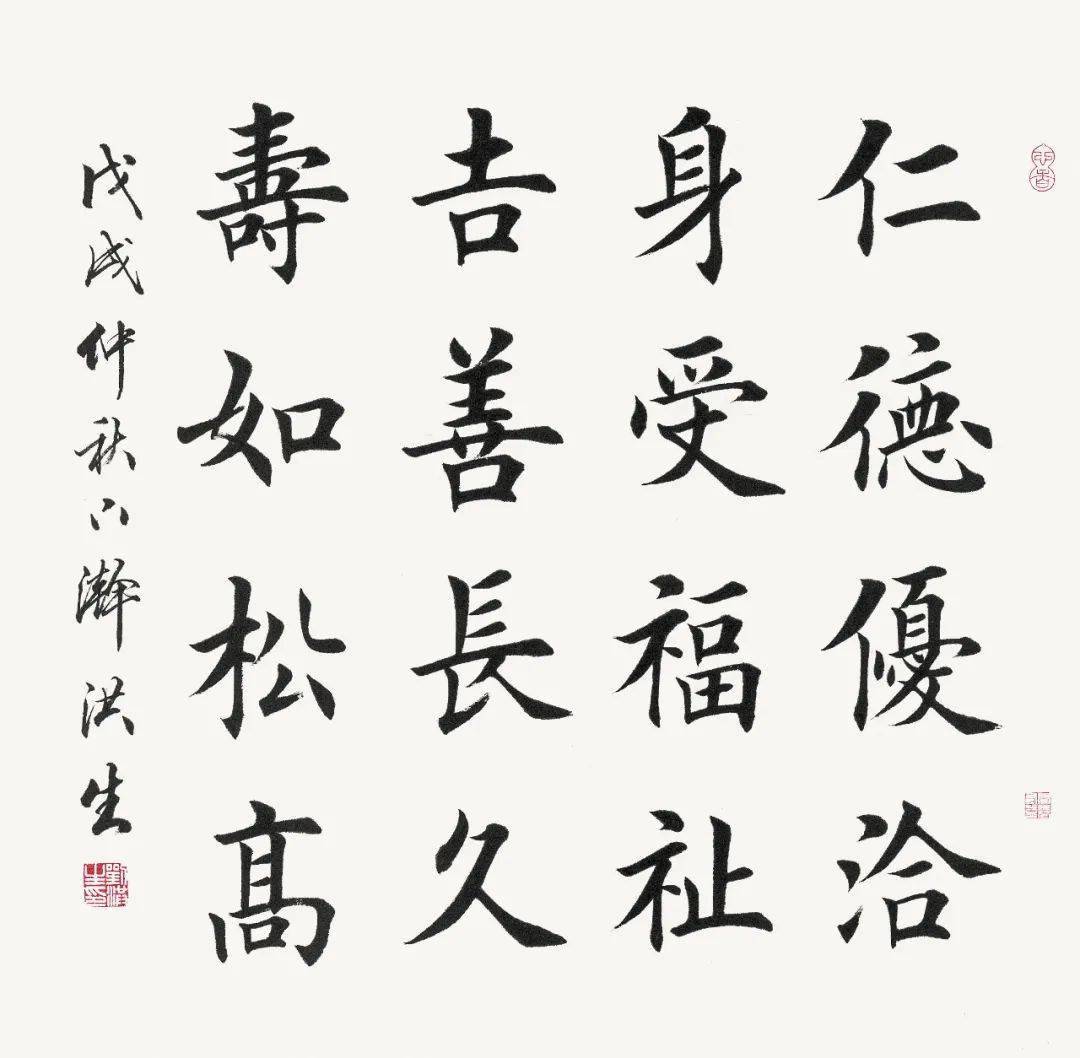 仁德優洽
身受福祉
吉善長久
壽如松高
戊戌仲秋六瀚洪生